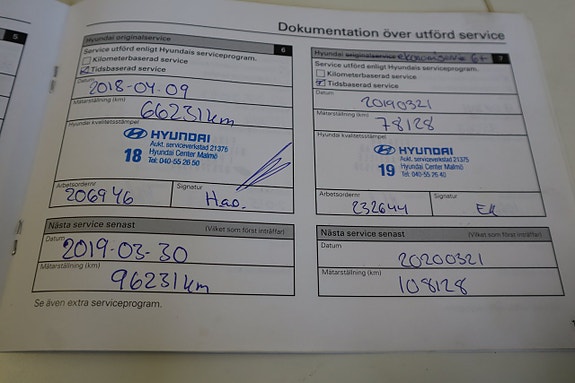 Dokumentation över utförd service
5
Hyundai originalservice 6
Service utförd enligt Hyundais serviceprogram.
Kilometerbaserad service
Tidsbaserad service
Datum
2018-04-09
Mätarställning (km)
66231km
Hyundai kvalitetsstämpel
HYUNDAI
Aukt. serviceverkstad 21375
18 Hyundai Center Malmö
Tel: 040-55 26 50
Arbetsordernr Signatur
206946 Hao.
Nästa service senast (Vilket som först inträffar)
Datum
2019-03-30
Mätarställning (km)
96231km
Se även extra serviceprogram.
Hyundai originalservice ekonomiservice 6+ 7
Service utförd enligt Hyundais serviceprogram.
Kilometerbaserad service
Tidsbaserad service
Datum
20190321
Mätarställning (km)
78128
Hyundai kvalitetsstämpel
HYUNDAI
Aukt. serviceverkstad 21375
19 Hyundai Center Malmö
Tel: 040-55 26 40
Arbetsordernr Signatur
232644
Nästa service senast (Vilket som först inträffar)
Datum
20200321
Mätarställning (km)
108128